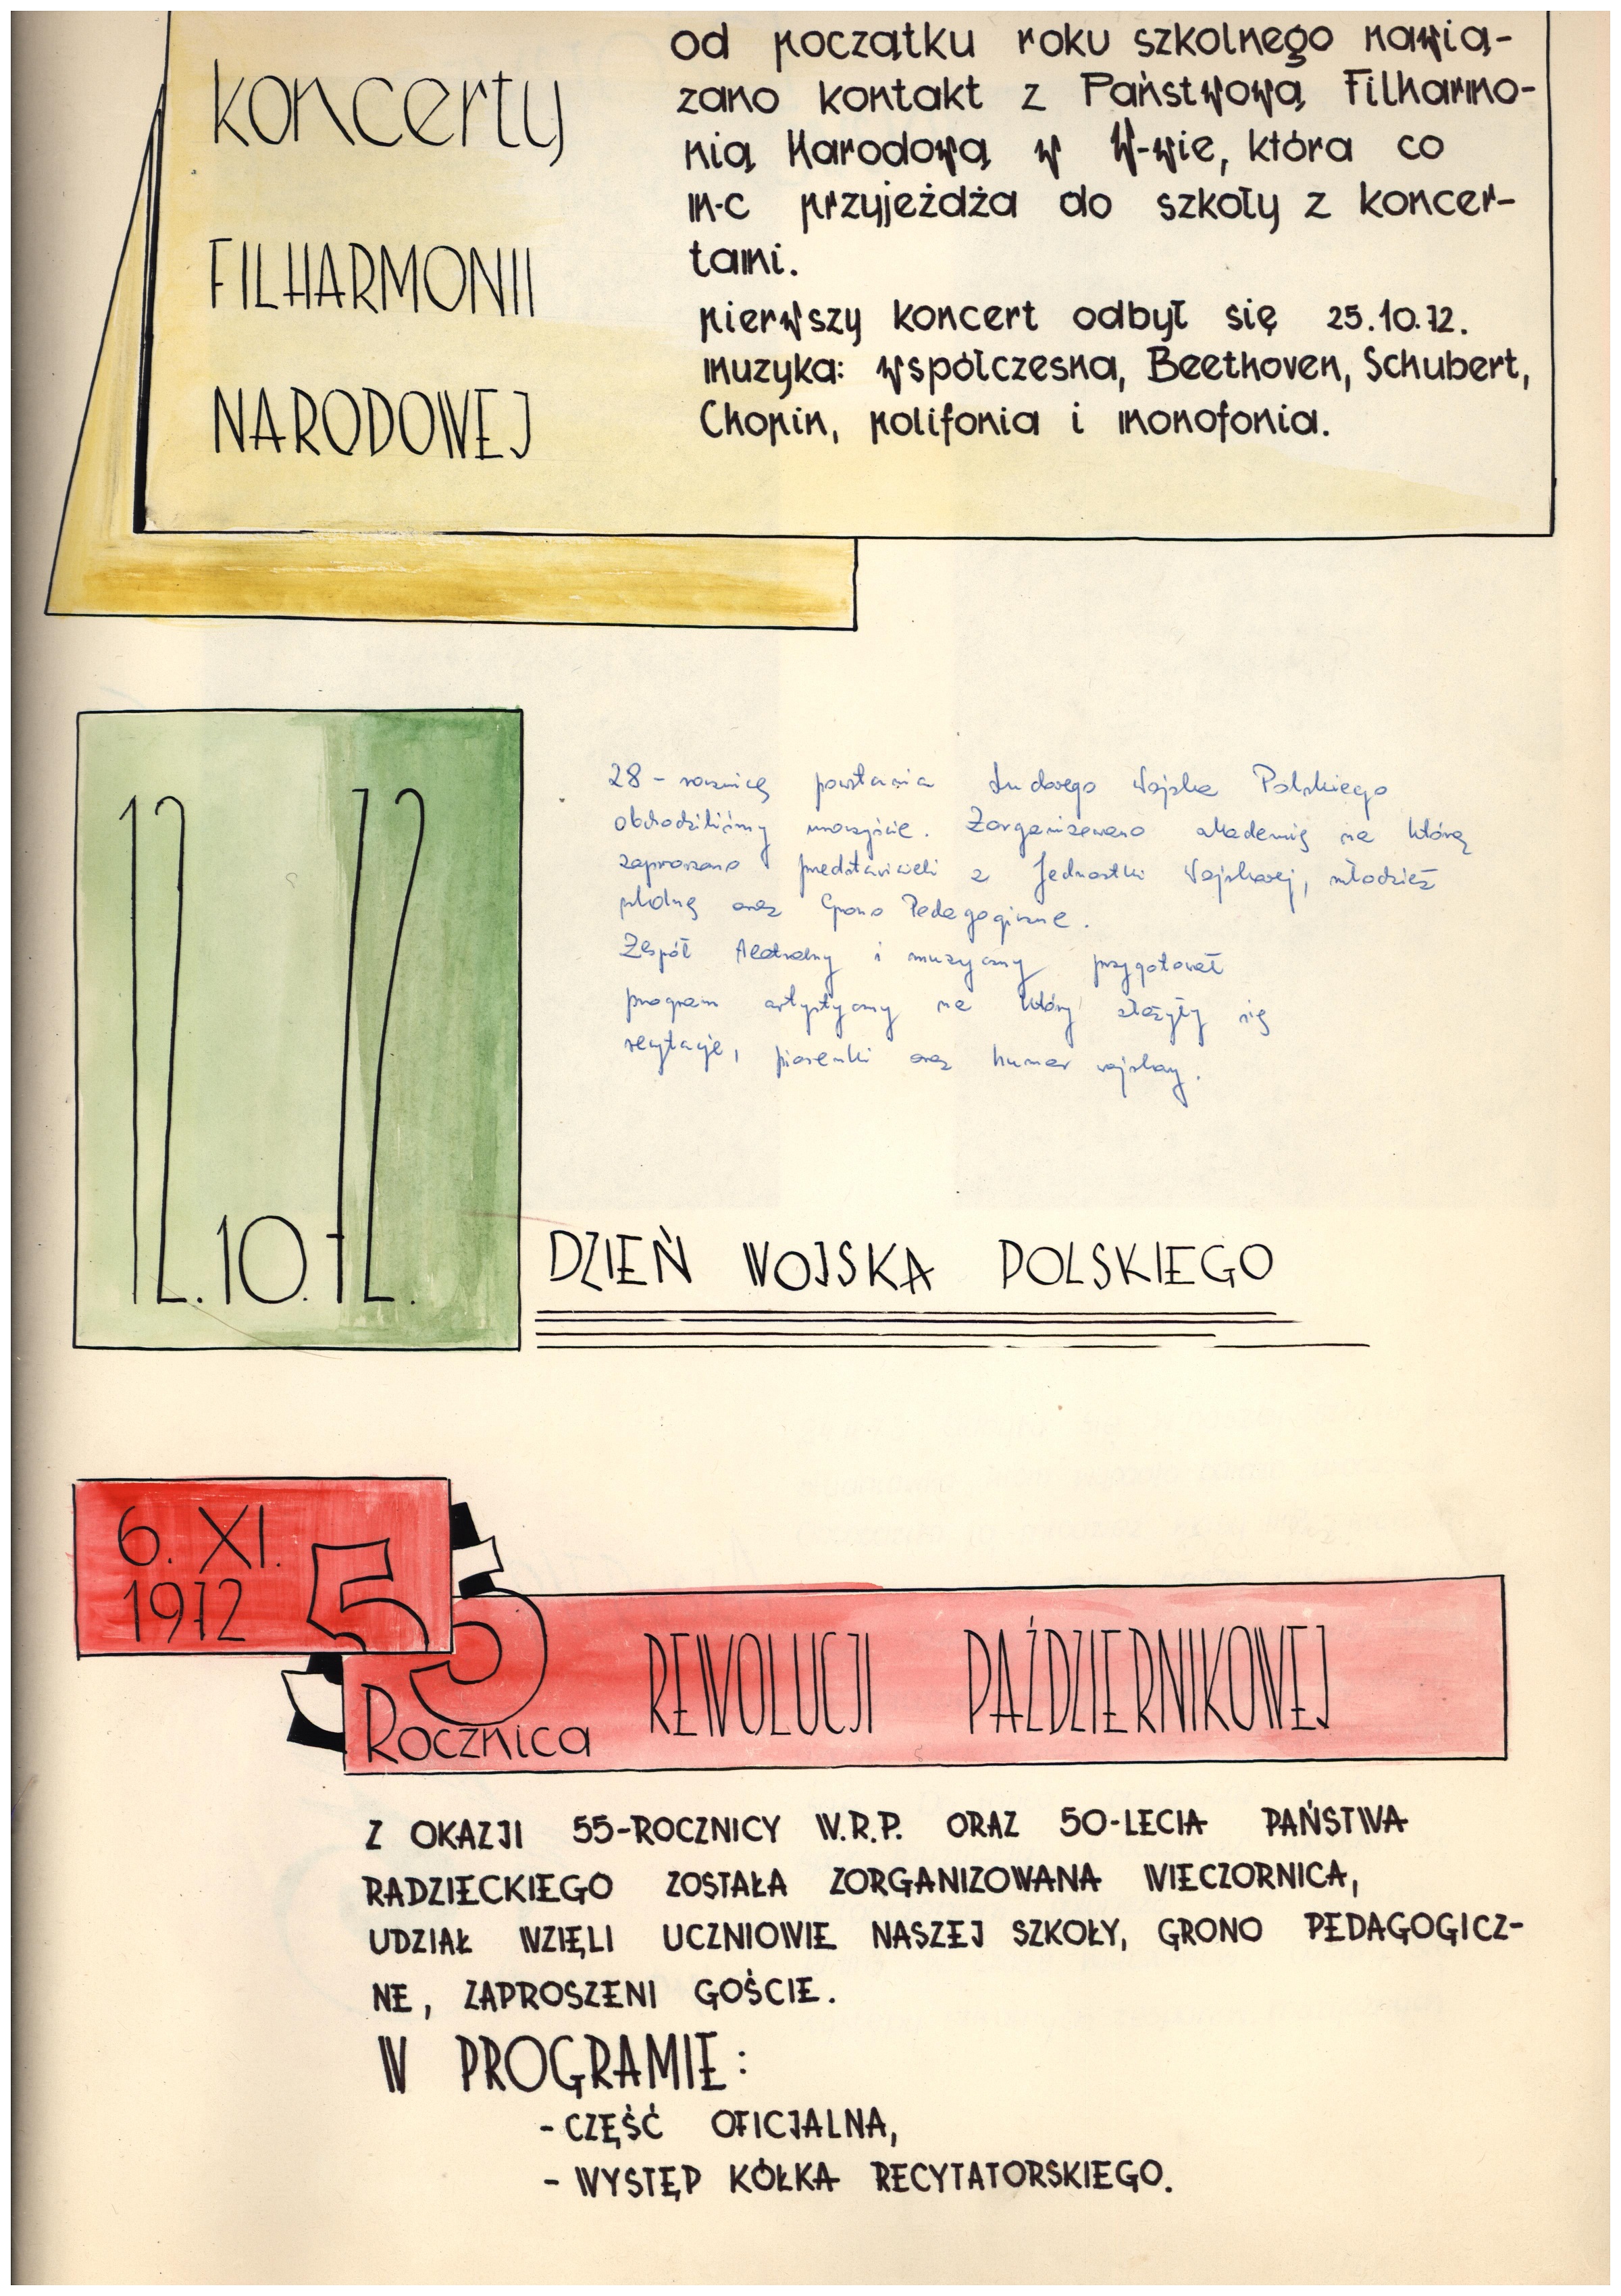 koncerty
FILHARMONII
NARODOWEJ
od początku roku szkolnego nawią-
zano kontakt z Państwową Filharmo-
nią Narodową w W-wie, która co
m-c przyjeżdża do szkoły z koncer-
tami.
pierwszy koncert odbył się 25.10.72.
muzyka: współczesna, Beethoven, Schubert,
Chopin, polifonia i monofonia.
12.10.72.
28 - rocznicę powstania Ludowego Wojska Polskiego
obchodziliśmy uroczyście. Zorganizowano akademię na którą
zaproszono przedstawicieli z Jednostki Wojskowej, młodzież
szkolną oraz Grono Pedagogiczne.
Zespół teatralny i muzyczny przygotował
program artystyczny na który złożyły się
recytacje, piosenki oraz humor wojskowy.
DZIEŃ WOJSKA POLSKIEGO
6. XI.
1972
55
Rocznica REWOLUCJI PAŹDZIERNIKOWEJ
Z OKAZJI 55-ROCZNICY W.R.P. ORAZ 50-LECIA PAŃSTWA
RADZIECKIEGO ZOSTAŁA ZORGANIZOWANA WIECZORNICA,
UDZIAŁ WZIĘLI UCZNIOWIE NASZEJ SZKOŁY, GRONO PEDAGOGICZ-
NE, ZAPROSZENI GOŚCIE.
W PROGRAMIE:
- CZĘŚĆ OFICJALNA,
- WYSTĘP KÓŁKA RECYTATORSKIEGO.